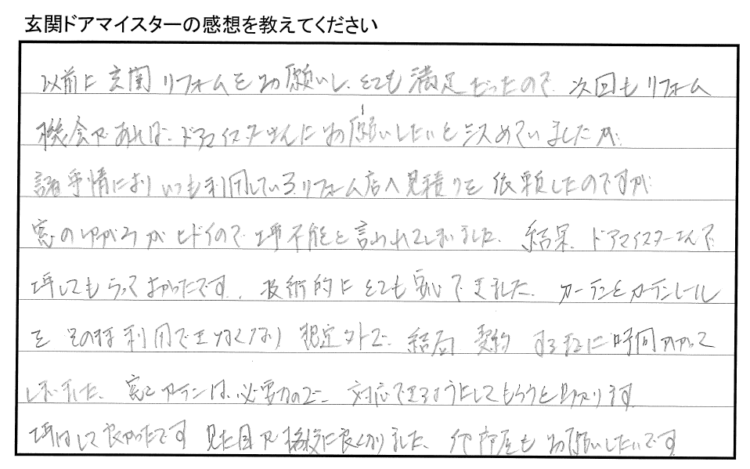 玄関ドアマイスターの感想を教えてください
以前に玄関リフォームをお願いし、とても満足だったので、次回もリフォーム
機会があれば、ドアマイスターさんにお願いしたいと決めていましたが
諸事情によりいつも利用しているリフォーム店へ見積りを依頼したのですが
窓のゆがみがヒドイので 不能と言われてしまいました。結果、ドアマイスターさんで
してもらってよかったです。技術的にとても安心できました。カーテンとカーテンレール
をそのまま利用できなくなり 想定外で、結局 契約 するまでに時間かかって
しまいました。窓とカーテンは、必要なので、対応できるようにしてもらうと助かります
して良かったです 見た目が格段に良くなりました、他部屋もお願いしたいです